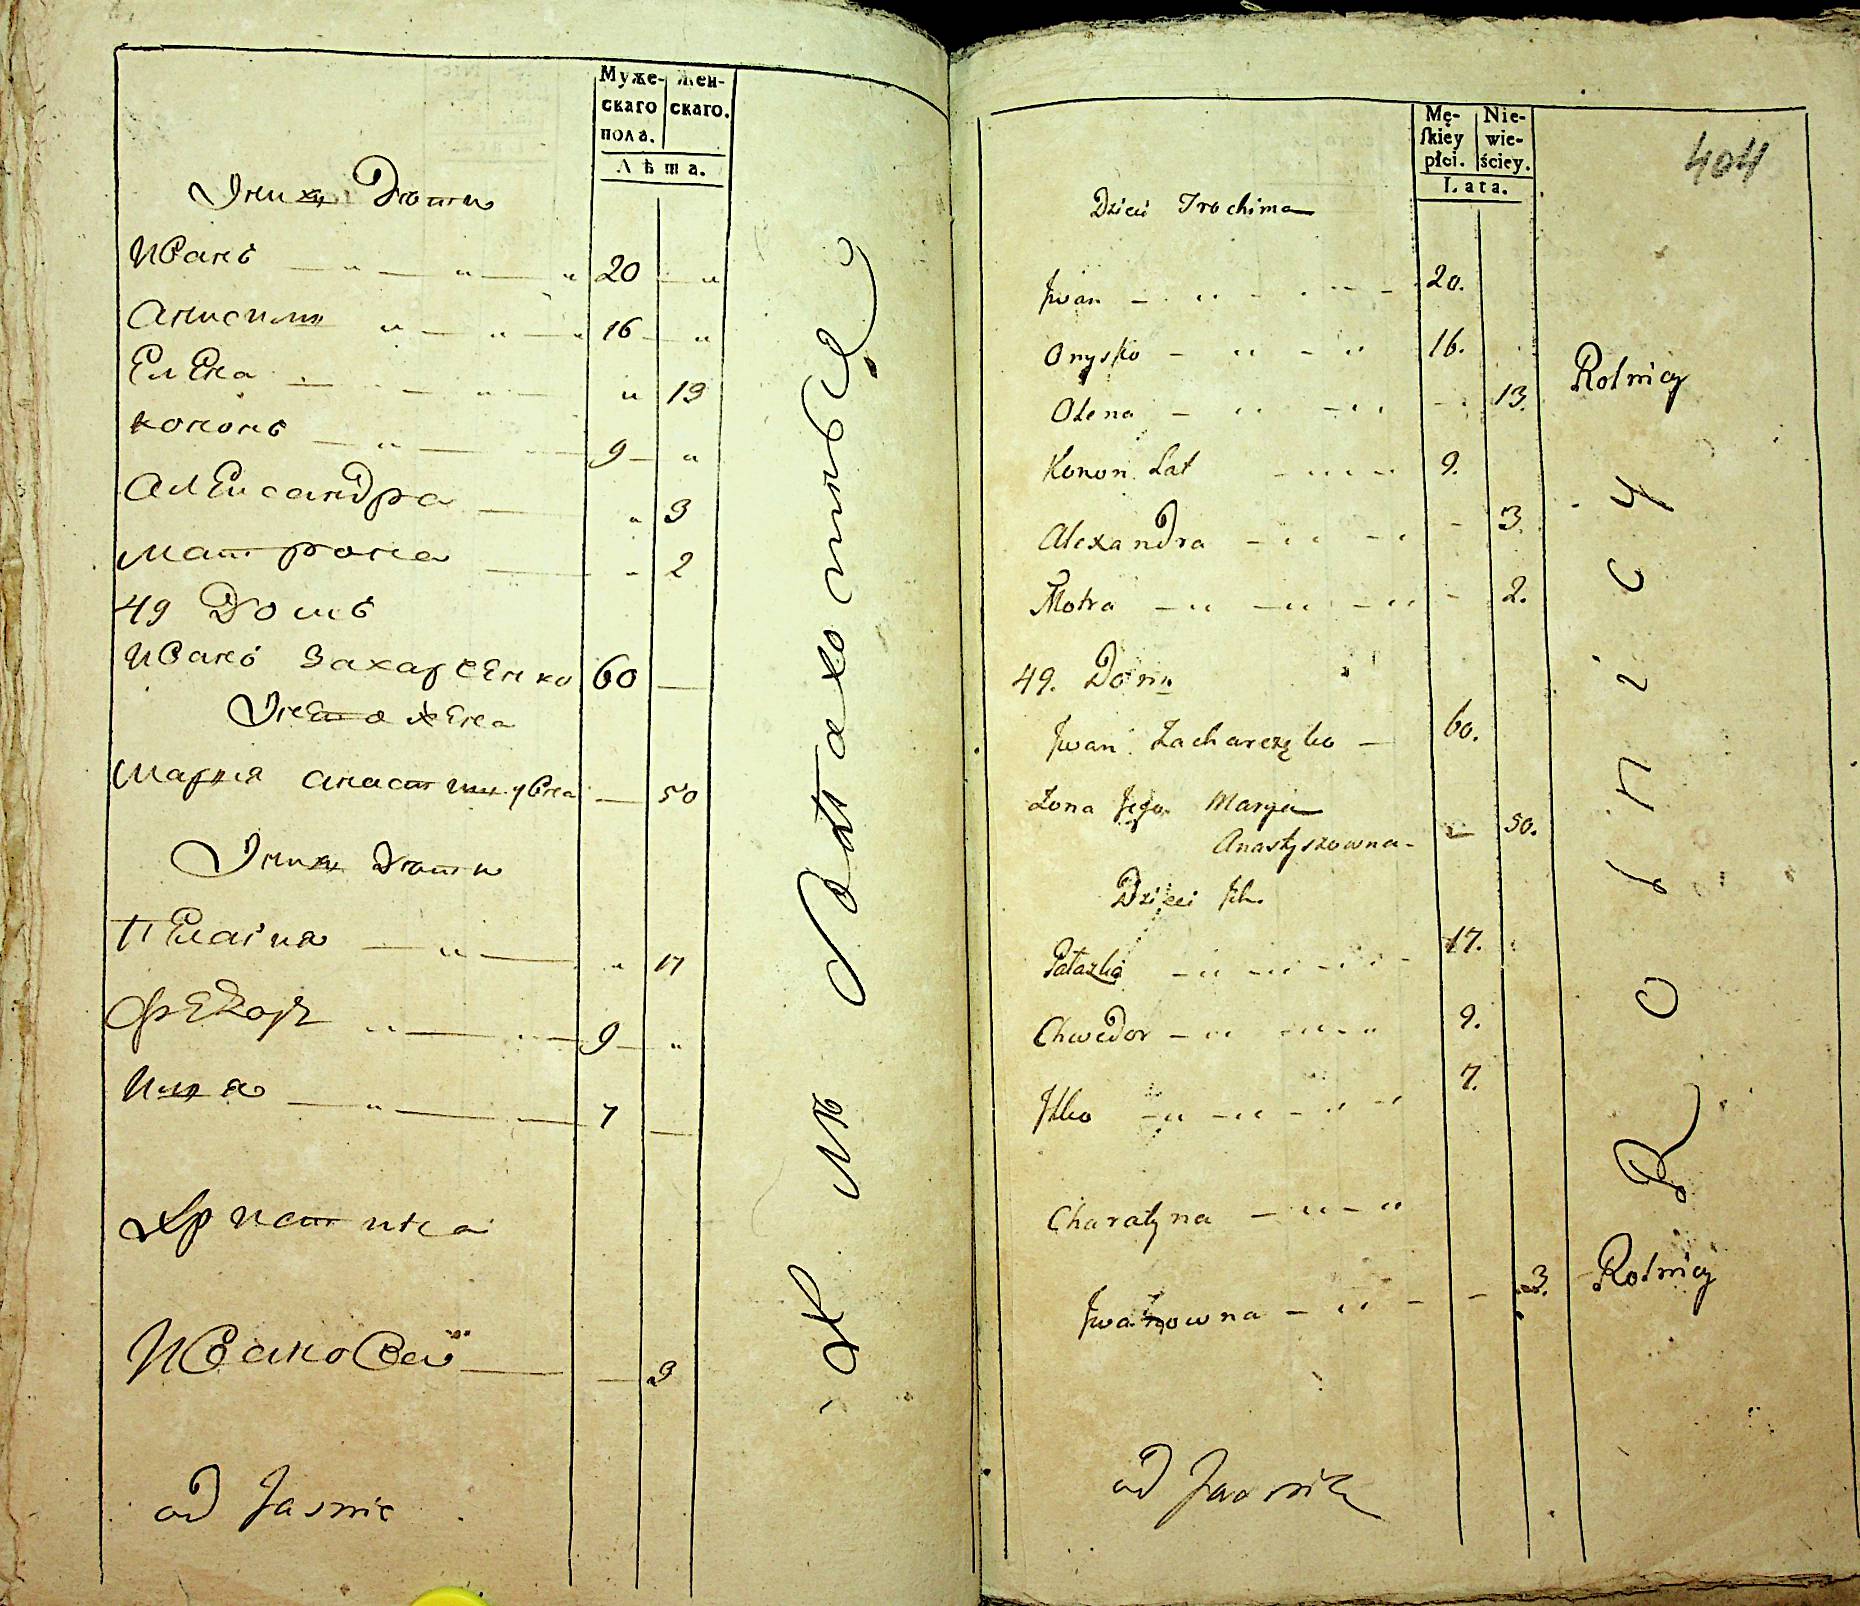 Муже-
скаго
пола.
Жен-
скаго.
Лѣта.
Ихъ Дѣти
Иванъ 20
Анисимъ 16
Елена 13
Кононъ 9
Александра 3
Матрона 2
49 Домъ
Иванъ Захарченко 60
жена
Мария 50
Ихъ Дѣти
Пелагия 17
Федоръ 9
Илия 7
Христина
Иванова 3
od Jasnie
Mę-
ſkiey
płci.
Nie-
wie-
ściey.
Lata.
404
Dzieci Trochima
Jwan 20.
Onysko 16.
Olena 13.
Konon Lat 9.
Alexandra 3.
Motra 2.
49. Dom
Jwan Zacharczęko 60.
Zona Jego Marya
Anastyszowna 50.
Dzieci Jch.
Pałazka 17.
Chwedor 9.
Jlko 7.
Charatyna
Jwanowna 3.
od Jasnie
Rolnicy
Rolnicy
Rolnicy